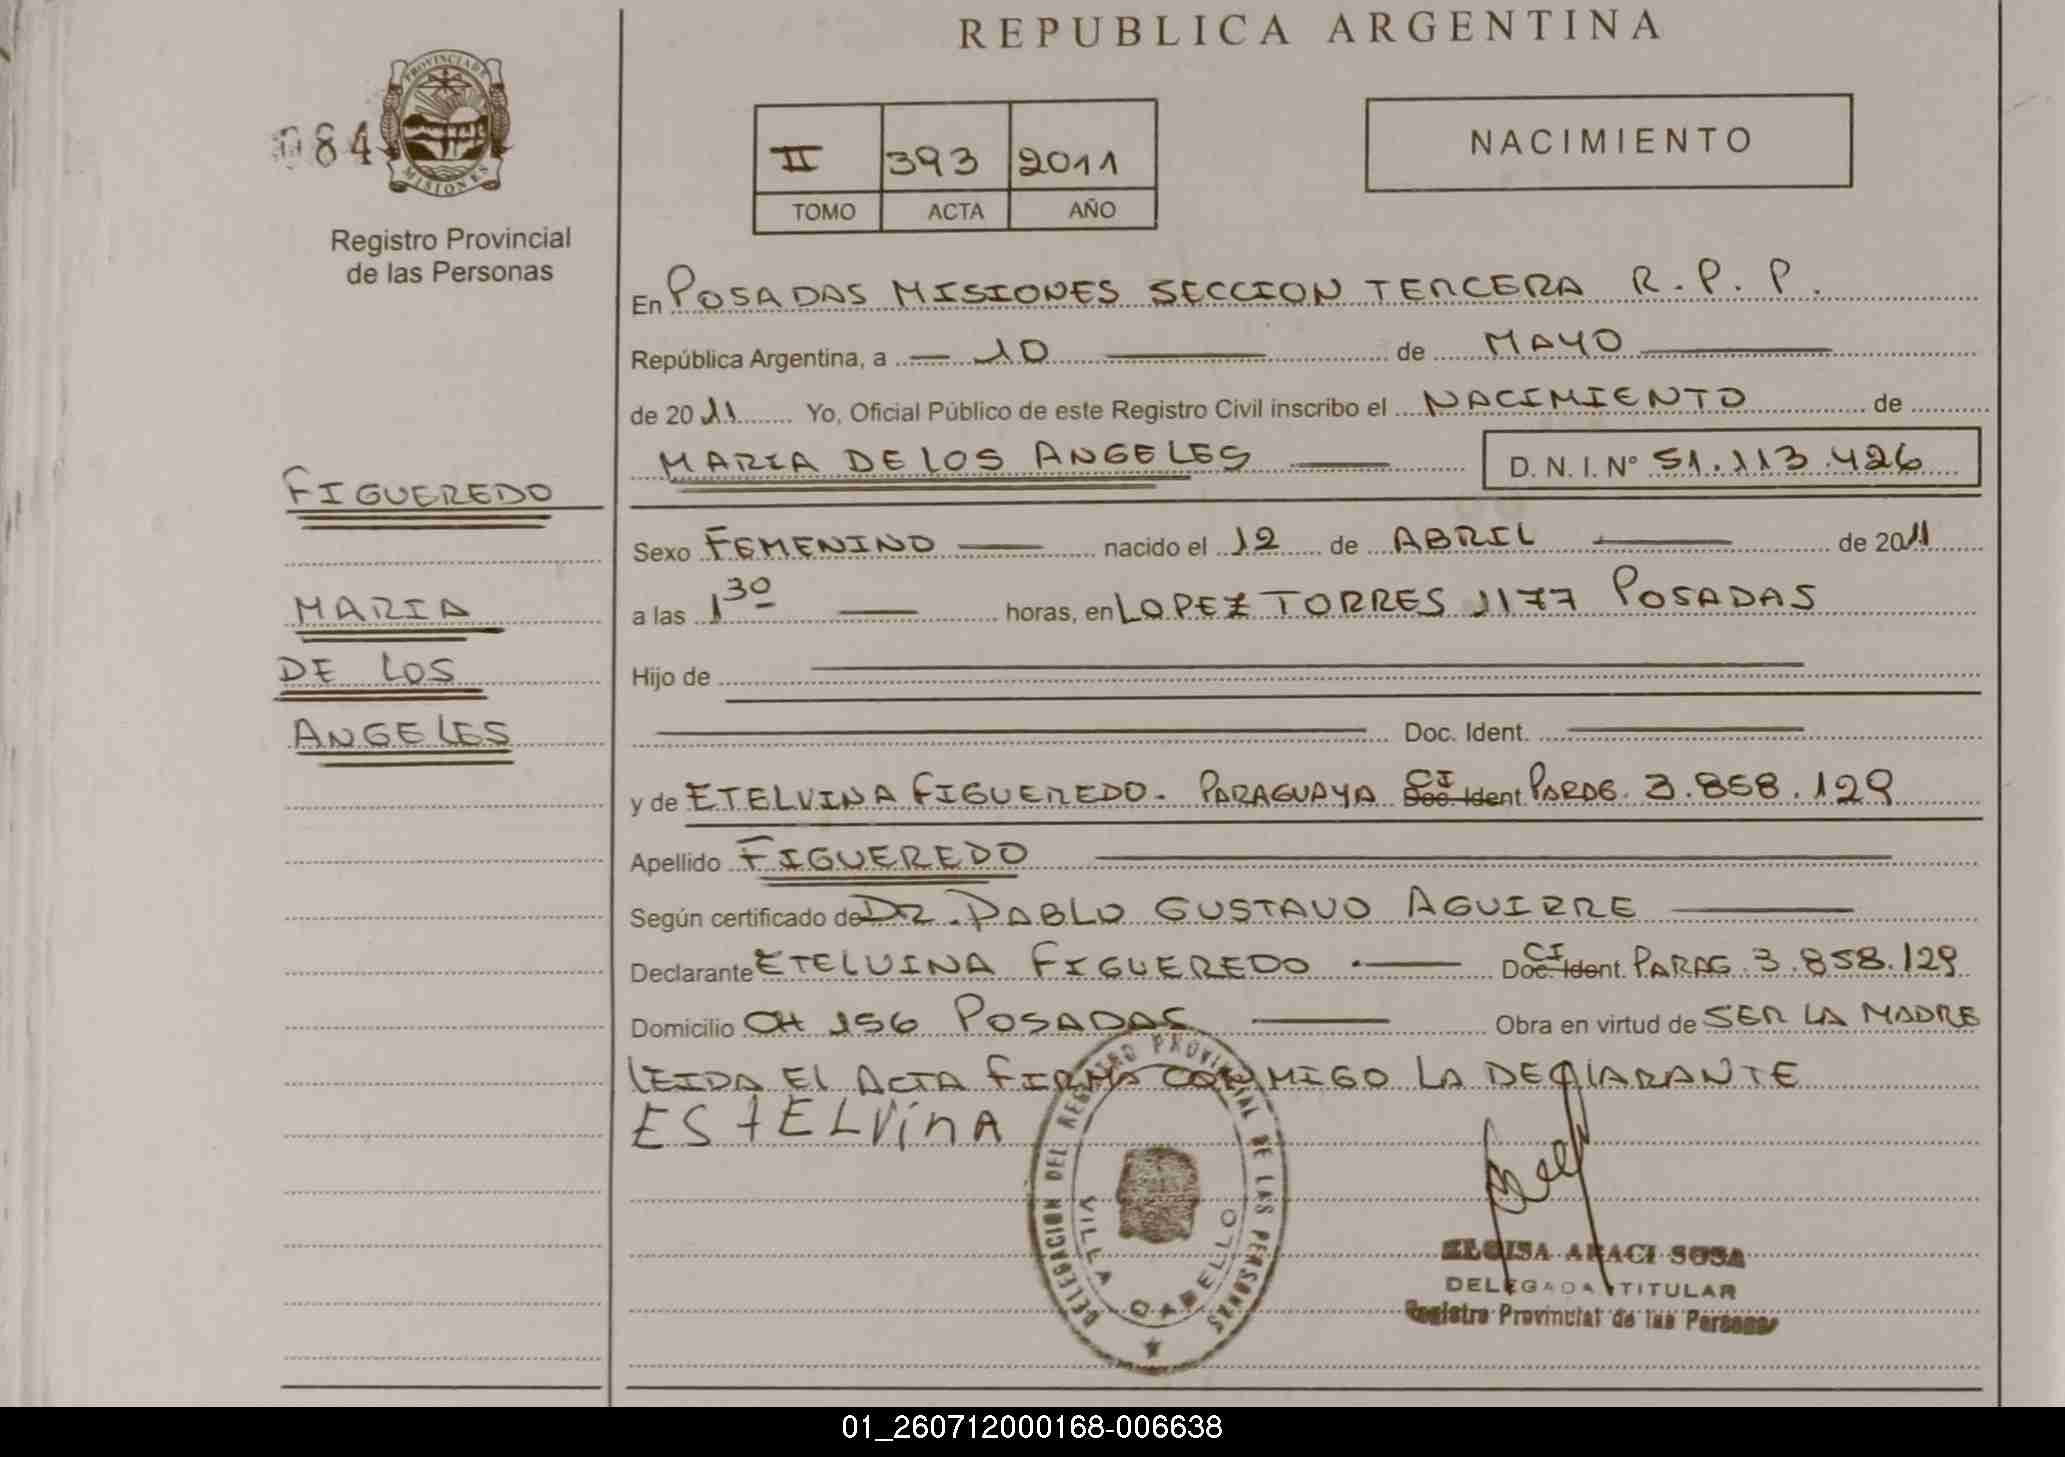 REPUBLICA ARGENTINA
PROVINCIA DE
MISIONES
084
Registro Provincial
de las Personas
II 393 2011
TOMO ACTA AÑO
NACIMIENTO
En POSADAS MISIONES SECCION TERCERA R.P.P.
República Argentina, a 10 de MAYO
de 2011 Yo, Oficial Público de este Registro Civil inscribo el NACIMIENTO de
MARIA DE LOS ANGELES D.N.I. Nº 51.113.426
FIGUEREDO
MARIA
DE LOS
ANGELES
Sexo FEMENINO nacido el 12 de ABRIL de 2011
a las 1 30 horas, en LOPEZ TORRES 1177 POSADAS
Hijo de
Doc. Ident.
y de ETELVINA FIGUEREDO. PARAGUAYA CI Doc. Ident PARAG. 3.858.129
Apellido FIGUEREDO
Según certificado de DR. PABLO GUSTAVO AGUIRRE
Declarante ETELVINA FIGUEREDO CI Doc. Ident. PARAG. 3.858.129
Domicilio CH 156 POSADAS Obra en virtud de SER LA MADRE
LEIDA EL ACTA FIRMA CONMIGO LA DECLARANTE
ESTELVINA
DELEGACION DEL REGISTRO PROVINCIAL DE LAS PERSONAS
VILLA CABELLO
ELOISA ARACI SOSA
DELEGADA TITULAR
Registro Provincial de las Personas
01_260712000168-006638